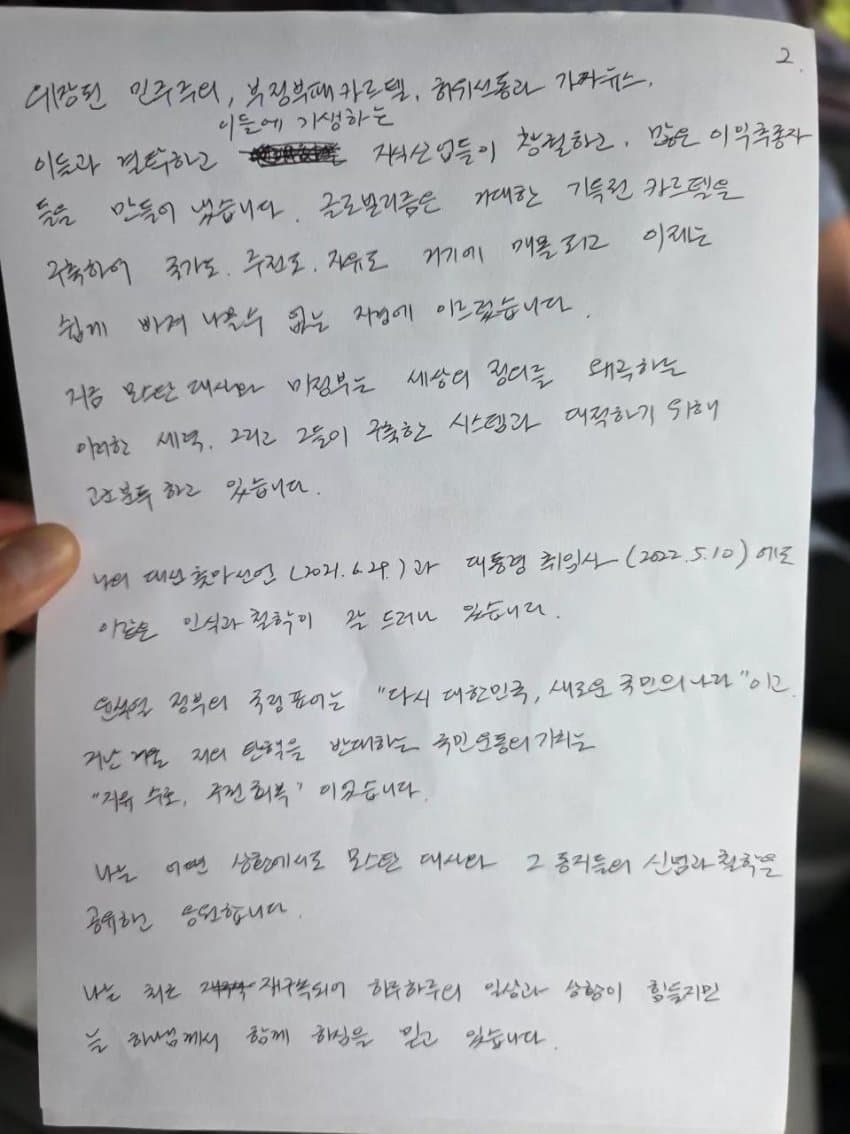 2.
위장된 민주주의, 부정부패 카르텔, 허위선동과 가짜뉴스,
이들에 기생하는
이들과 결탁하고 지식산업들이 창궐하고, 많은 이익추종자
들을 만들어 냈습니다. 글로벌리즘은 거대한 기득권 카르텔을
구축하여 국가도, 주권도, 자유도 거기에 매몰되고 이제는
쉽게 빠져 나올수 없는 지경에 이르렀습니다.
지금 모스탄 대사와 미정부는 세상의 정의를 왜곡하는
이러한 세력, 그리고 그들이 구축한 시스템과 대적하기 위해
고군분투 하고 있습니다.
나의 대선 출마선언 (2021.6.29.)과 대통령 취임사 (2022.5.10)에도
이같은 인식과 철학이 잘 드러나 있습니다.
윤석열 정부의 국정표어는 "다시 대한민국, 새로운 국민의 나라"이고
지난 겨울 저의 탄핵을 반대하는 국민운동의 기치는
"자유 수호, 주권 회복" 이었습니다.
나는 어떤 상황에서도 모스탄 대사와 그 동지들의 신념과 철학을
공유하고 응원합니다.
나는 최근 재구속되어 하루하루의 일상과 상황이 힘들지만
늘 하나님께서 함께 하심을 믿고 있습니다.